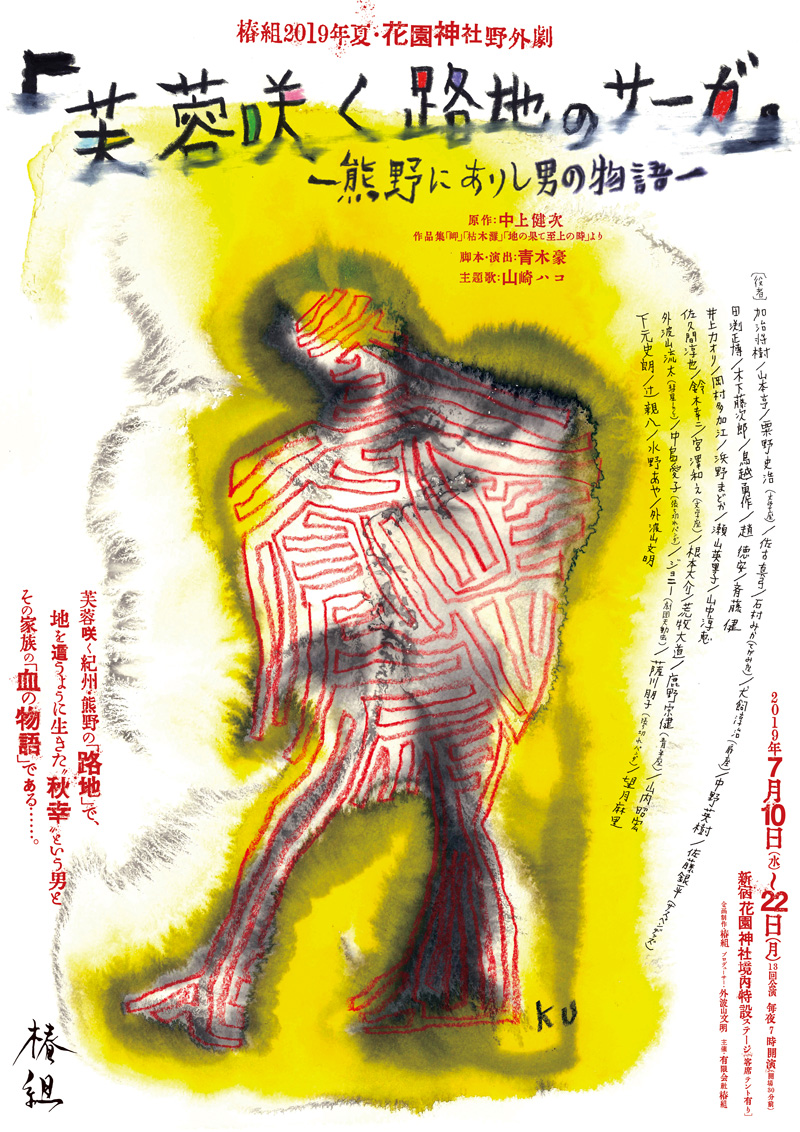 椿組2019年夏・花園神社野外劇
「芙蓉咲く路地のサーガ」
ー熊野にありし男の物語ー
原作：中上健次
作品集「岬」「枯木灘」「地の果て至上の時」より
脚本・演出：青木豪
主題歌：山崎ハコ
〔役者〕加治将樹／山本亨／粟野史浩（文学座）／佐古真弓／石村みか（てがみ座）／犬飼淳治（扉座）／中野英樹／佐藤銀平（アスペンデッズ）
田渕正博／木下藤次郎／鳥越勇作／趙徳安／斉藤健
井上カオリ／岡村多加江／浜野まどか／瀬山英里子／山中淳恵
佐久間淳也／鈴木幸二／宮澤和之（文学座）／根本大介／荒牧大道／鹿野宗健（青年座）／山内昭宏
外波山流太／中島愛子／ジョニー（劇団天動虫）／薩川朋子／望月麻里
下元史朗／辻親八／水野あや／外波山文明
2019年7月10日（水）〜22日（月）13回公演 毎夜7時開演（開場30分前）
新宿花園神社境内特設ステージ［客席テント有り］
企画制作 椿組 プロデューサー：外波山文明 主催：有限会社椿組
芙蓉咲く紀州・熊野の「路地」で、
地を這うように生きた"秋幸"という男と
その家族の「血の物語」である……。
KU
椿組